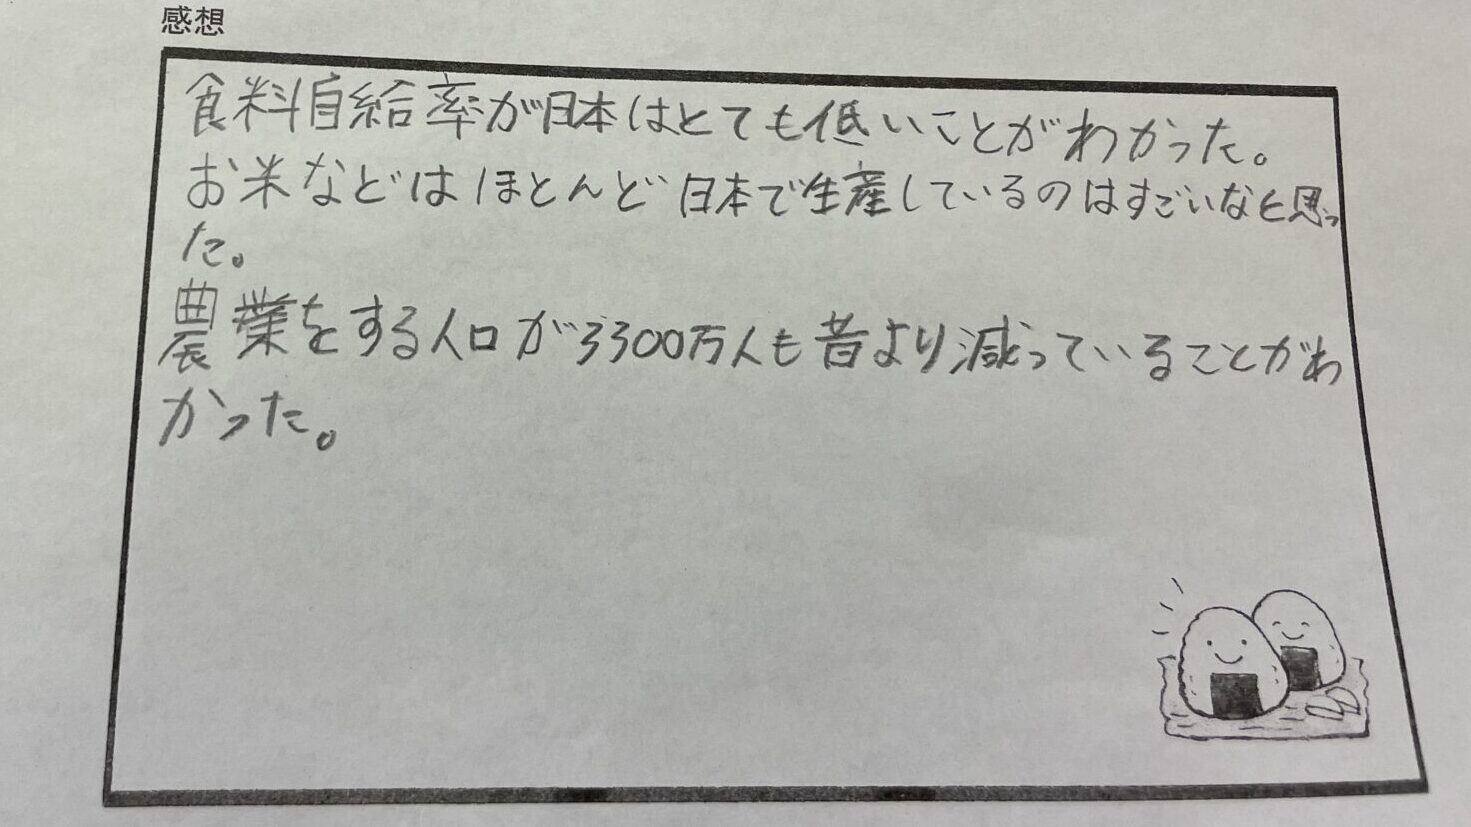 感想
食料自給率が日本はとても低いことがわかった。
お米などはほとんど日本で生産しているのはすごいなと思っ
た。
農業をする人口が3300万人も昔より減っていることがわ
かった。